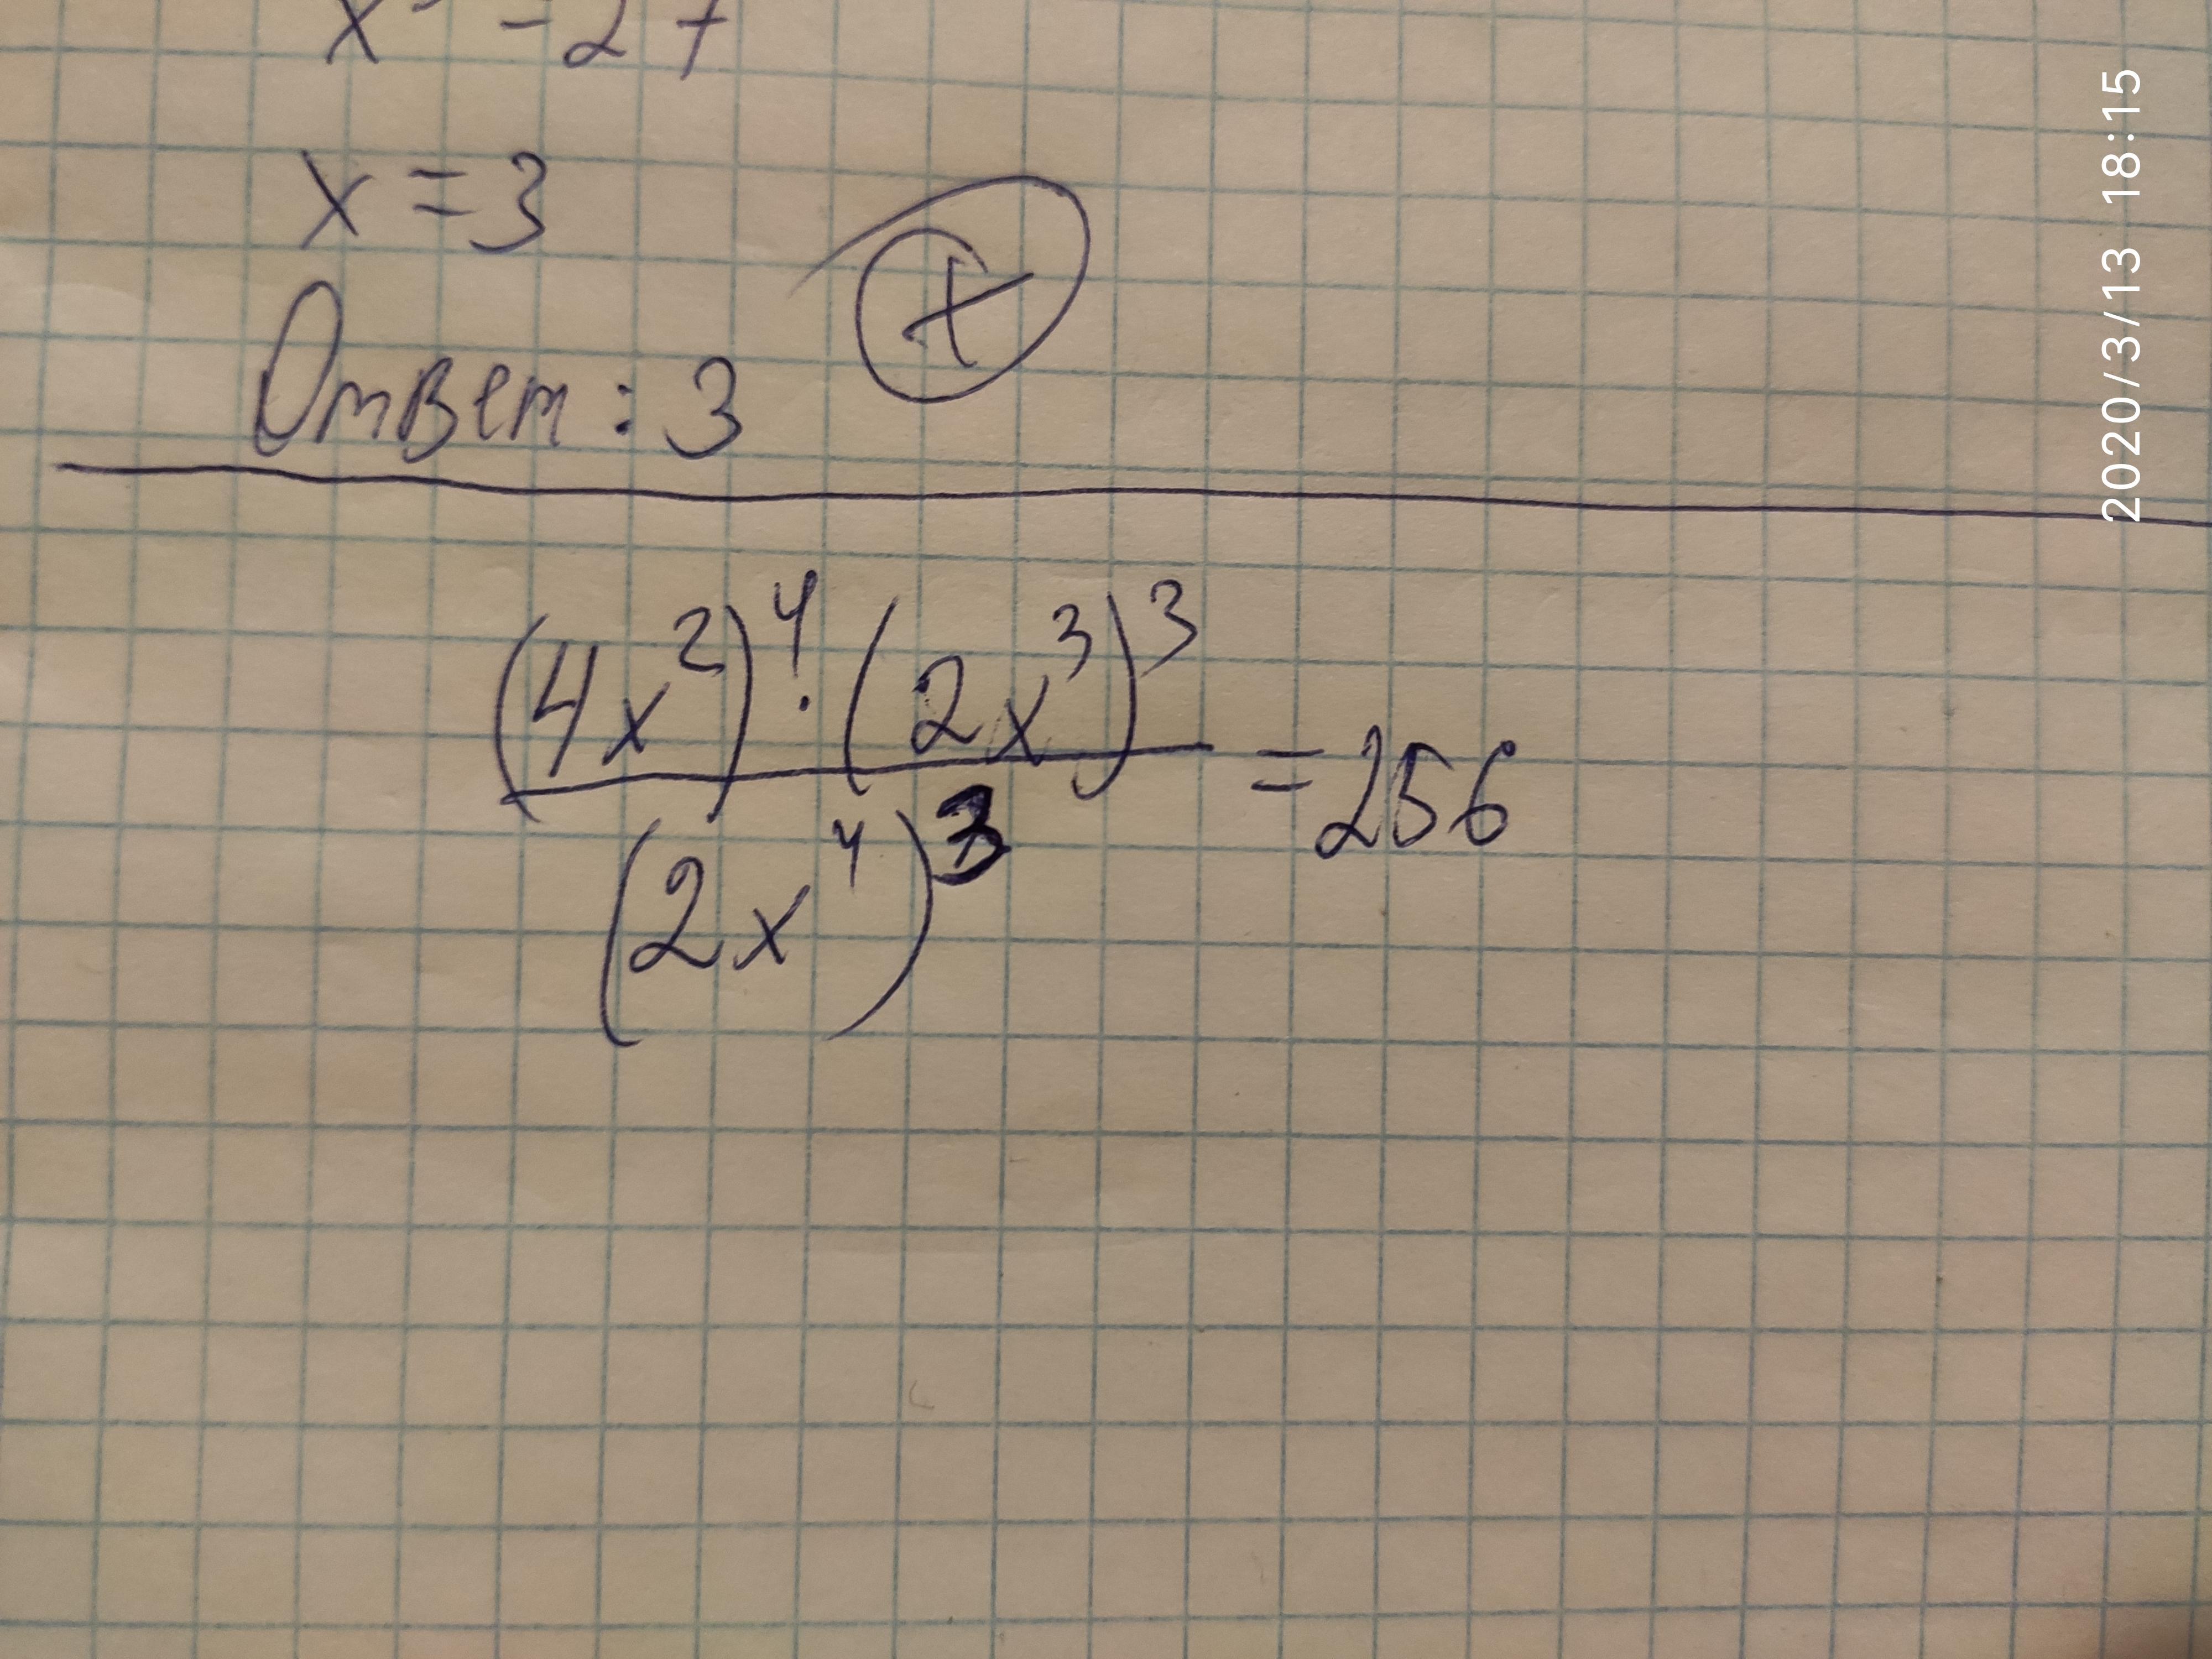 x³ = 27
x = 3
Ответ: 3
+
(4x²)⁴ · (2x³)³
= 256
(2x⁴)³
2020/3/13 18:15